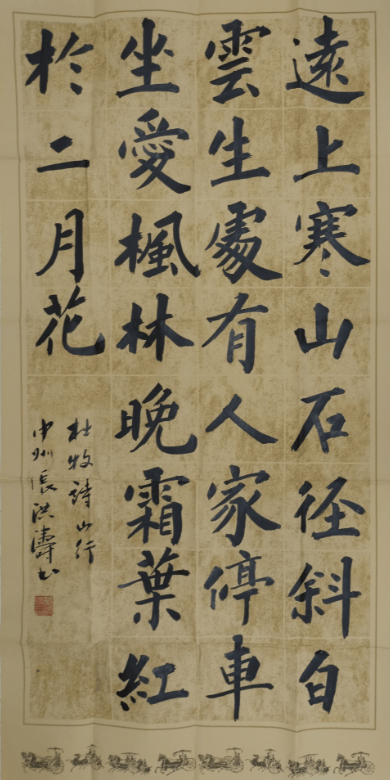 遠上寒山石径斜白
雲生處有人家停車
坐愛楓林晚霜葉紅
於二月花
杜牧詩山行
中州張洪濤书